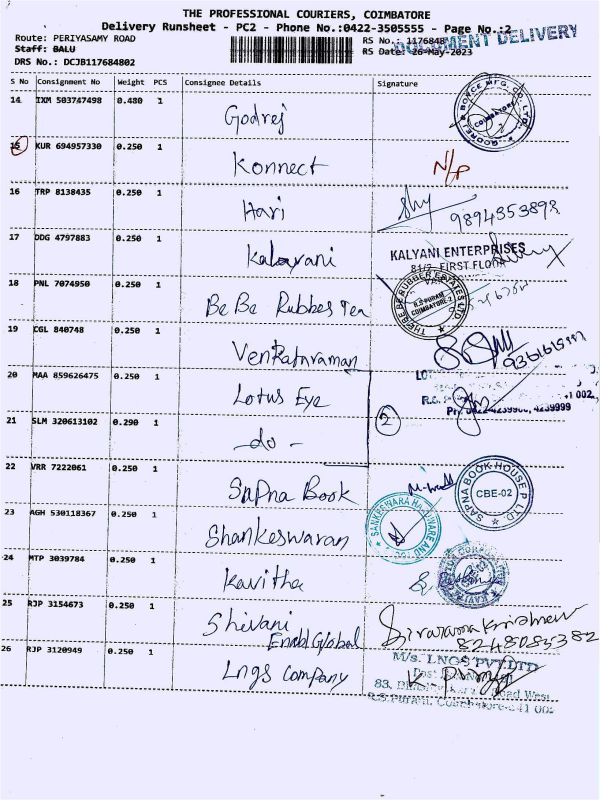 THE PROFESSIONAL COURIERS, COIMBATORE
Delivery Runsheet - PC2 - Phone No.:0422-3505555 - Page No.:2
DOCUMENT DELIVERY
Route: PERIYASAMY ROAD
RS No.: 1176848
Staff: BALU
RS Date: 26-May-2023
DRS No.: DCJB117684802
S No Consignment No Weight PCS Consignee Details Signature
14 IXM 503747498 0.480 1 Godrej
GODREJ & BOYCE MFG. CO. LTD. COIMBATORE
15 KUR 694957330 0.250 1 Konnect N/P
16 TRP 8138435 0.250 1 Hari 9894353893
17 DDG 4797883 0.250 1 Kalayani
KALYANI ENTERPRISES
FIRST FLOOR
18 PNL 7074950 0.250 1 Be Be Rubber Tea
THE BE BE RUBBER ESTATES LTD. R.S.PURAM COIMBATORE-2
19 CGL 840748 0.250 1 Venkatnraman
20 MAA 859626475 0.250 1 Lotus Eye
2
4239999
21 SLM 320613102 0.290 1 - do -
22 VRR 7222061 0.250 1 Sapna Book
SAPNA BOOK HOUSE P LTD CBE-02
23 AGH 530118367 0.250 1 Shankeswaran
24 MTP 3039784 0.250 1 Kavitha
25 RJP 3154673 0.250 1 Shivani
Enabl Global
8248085382
26 RJP 3120949 0.250 1 Lngs Company
M/s. LNGS PVT LTD
83, Road West
R.S.Puram, Coimbatore-641 002